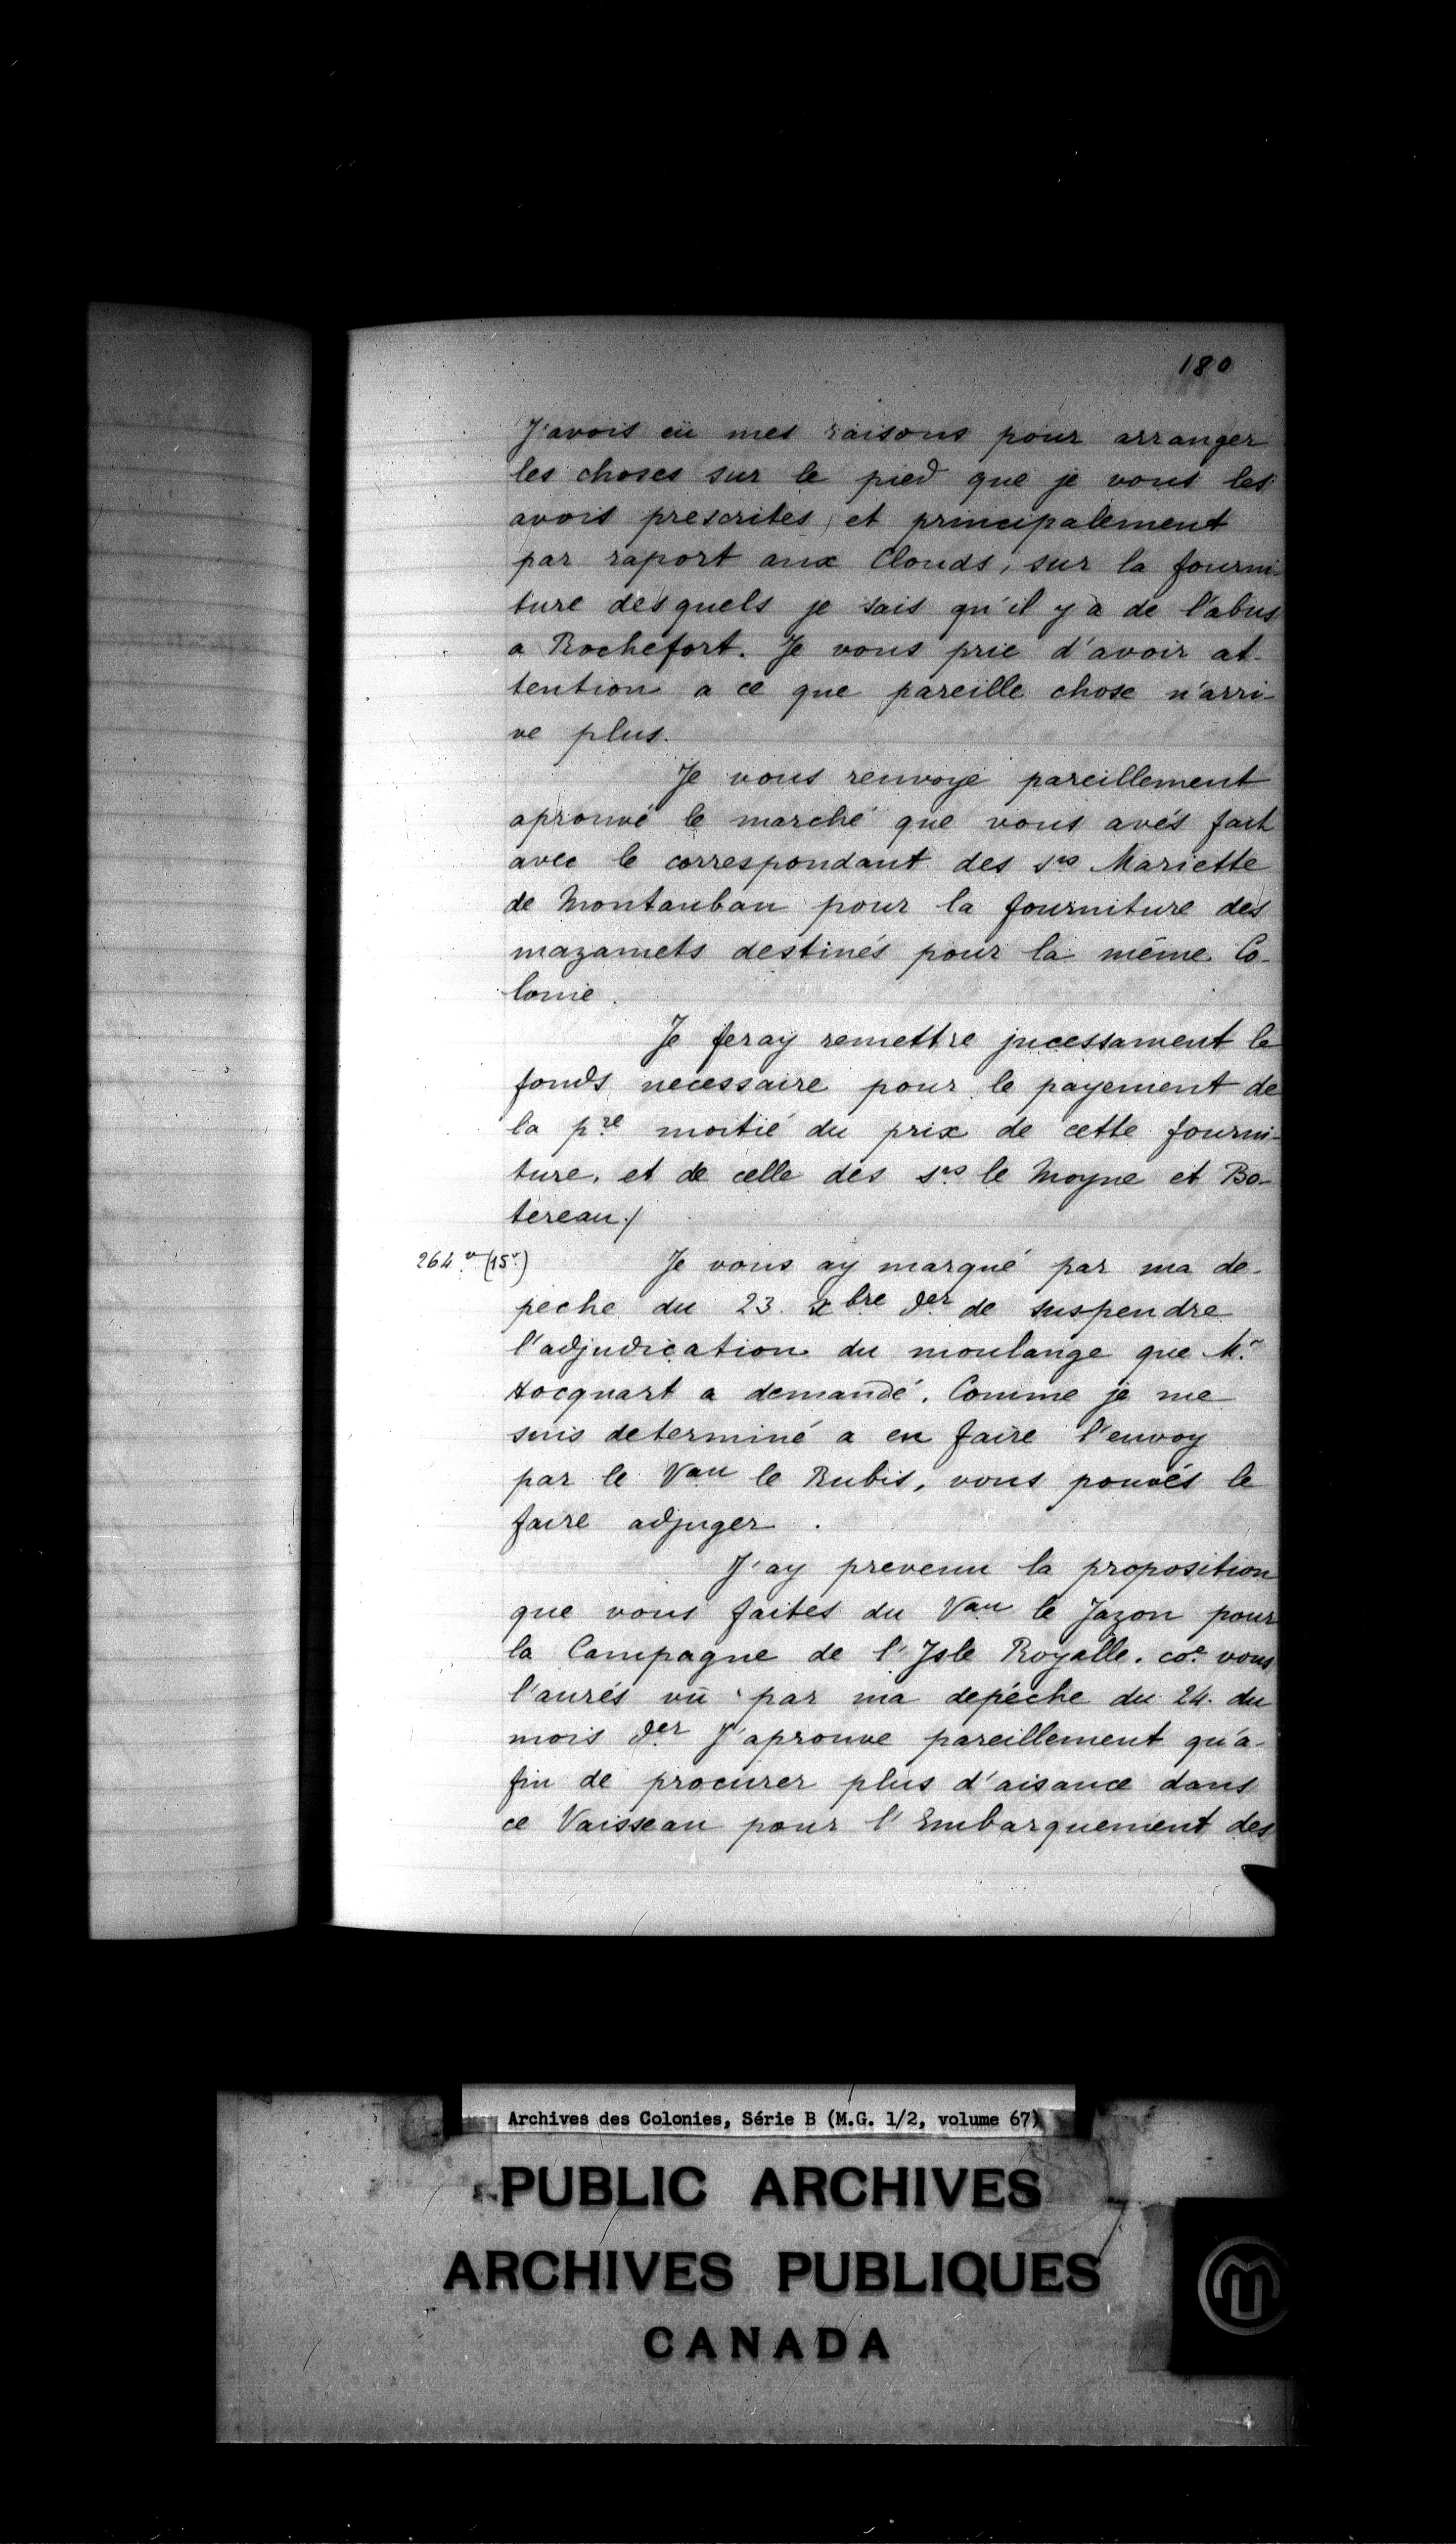 180
J'avois eü mes raisons pour arranger
les choses sur le pied que je vous les
avois prescrites, et principalement
par raport aux Clouds, sur la fourni-
ture desquels je sais qu'il y a de l'abus
a Rochefort. Je vous prie d'avoir at-
tention a ce que pareille chose n'arri-
ve plus.
Je vous renvoye pareillement
aprouvé le marché que vous avés fait
avec le correspondant des srs Mariette
de Montauban pour la fourniture des
mazamets destinés pour la même Co-
lonie.
Je feray remettre jncessament le
fonds necessaire pour le payement de
la pre moitié du prix de cette fourni-
ture, et de celle des srs le Moyne et Bo-
tereau./
264 v (15v)
Je vous ay marqué par ma de-
peche du 23. xbre der de suspendre
l'adjudication du moulange que Mr
Hocquart a demandé. Comme je me
suis determiné a en faire l'envoy
par le Vau le Rubis, vous pouvés le
faire adjuger.
J'ay prevenu la proposition
que vous faites du Vau le Jazon pour
la Campagne de l'Jsle Royalle. coe vous
l'aurés vû par ma depêche du 24. du
mois der J'aprouve pareillement qu'a-
fin de procurer plus d'aisance dans
ce Vaisseau pour l'Embarquement des
Archives des Colonies, Série B (M.G. 1/2, volume 67)
PUBLIC ARCHIVES
ARCHIVES PUBLIQUES
CANADA